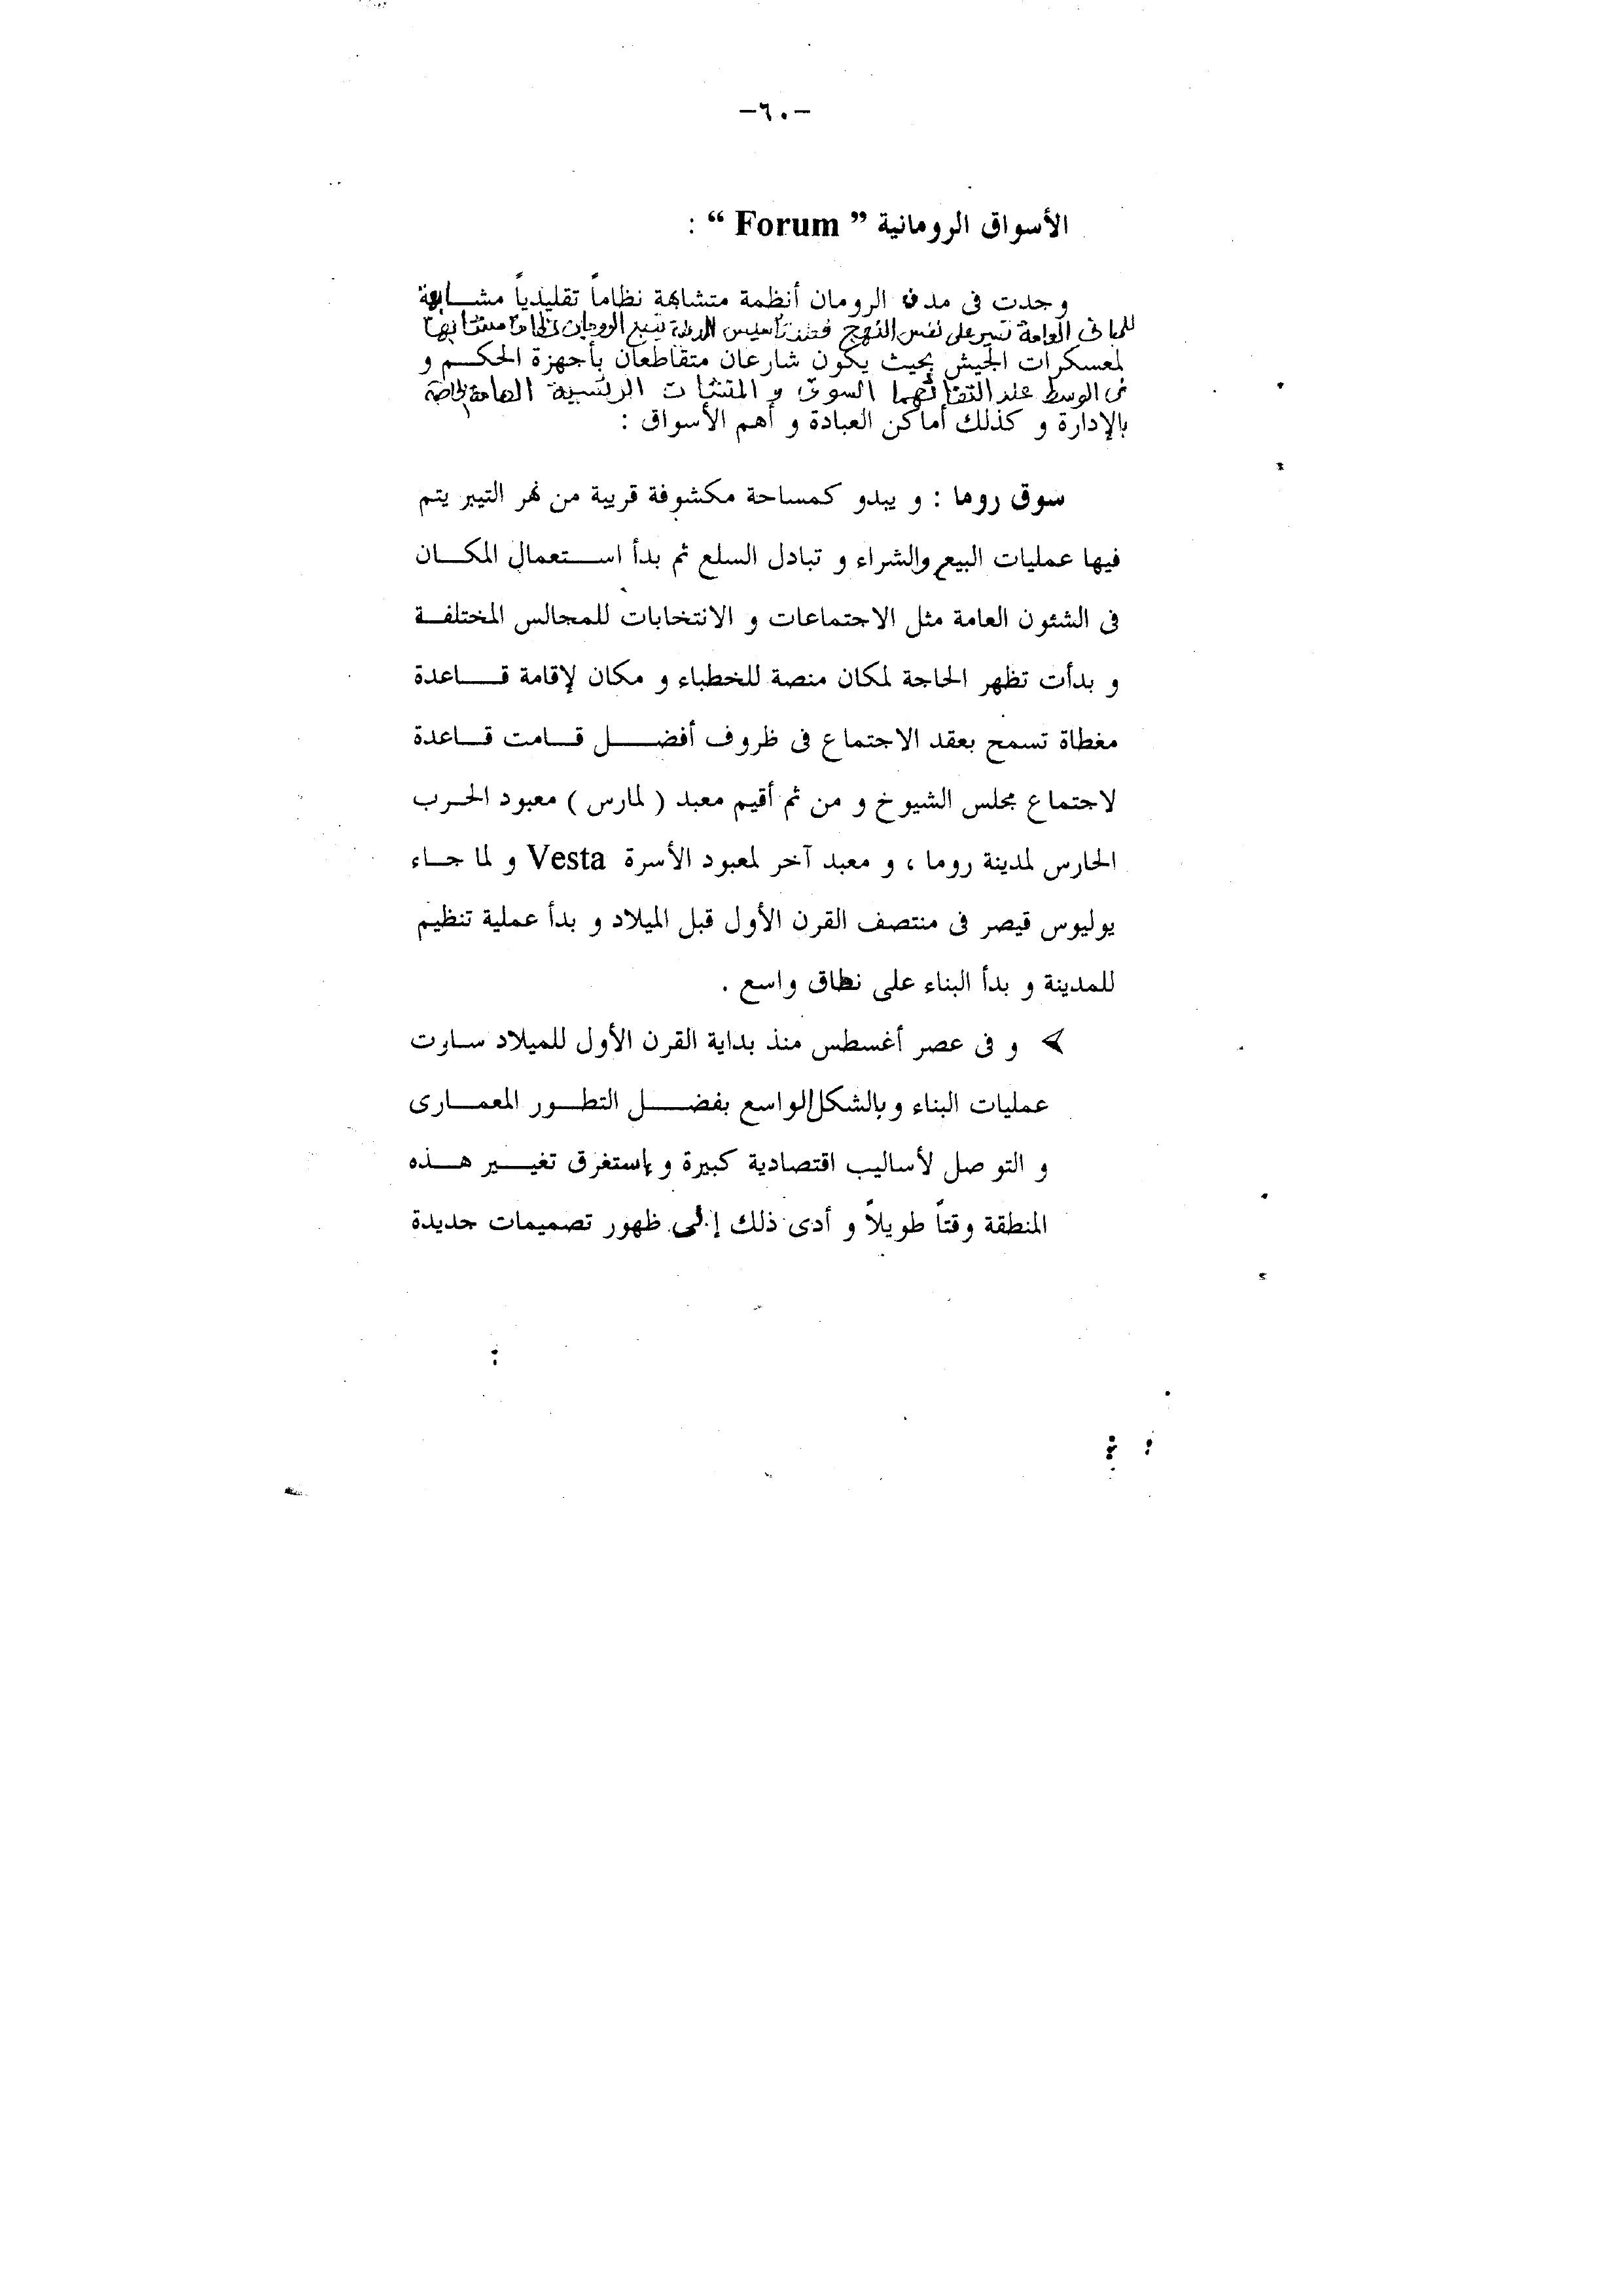 -٦٠-
الأسواق الرومانية " Forum " :
وجدت فى مدن الرومان أنظمة متشابهة نظاماً تقليدياً مشابهة
للمبانى العامة تسير على نفس النهج فعند تأسيس المدينة يتبع الرومان نظاماً مشابهاً
لمعسكرات الجيش بحيث يكون شارعان متقاطعان بأجهزة الحكم و
فى الوسط عند التقائهما السوق و المنشآت الرئيسية الهامة الخاصة
بالإدارة و كذلك أماكن العبادة و أهم الأسواق :
سوق روما : و يبدو كمساحة مكشوفة قريبة من نهر التيبر يتم
فيها عمليات البيع والشراء و تبادل السلع ثم بدأ استعمال المكان
فى الشئون العامة مثل الاجتماعات و الانتخابات للمجالس المختلفة
و بدأت تظهر الحاجة لمكان منصة للخطباء و مكان لإقامة قاعدة
مغطاة تسمح بعقد الاجتماع فى ظروف أفضل قامت قاعدة
لاجتماع مجلس الشيوخ و من ثم أقيم معبد ( لمارس ) معبود الحرب
الحارس لمدينة روما ، و معبد آخر لمعبود الأسرة Vesta و لما جاء
يوليوس قيصر فى منتصف القرن الأول قبل الميلاد و بدأ عملية تنظيم
للمدينة و بدأ البناء على نطاق واسع .
➢ و فى عصر أغسطس منذ بداية القرن الأول للميلاد سارت
عمليات البناء وبالشكل الواسع بفضل التطور المعمارى
و التوصل لأساليب اقتصادية كبيرة و إستغرق تغيير هذه
المنطقة وقتاً طويلاً و أدى ذلك إلى ظهور تصميمات جديدة